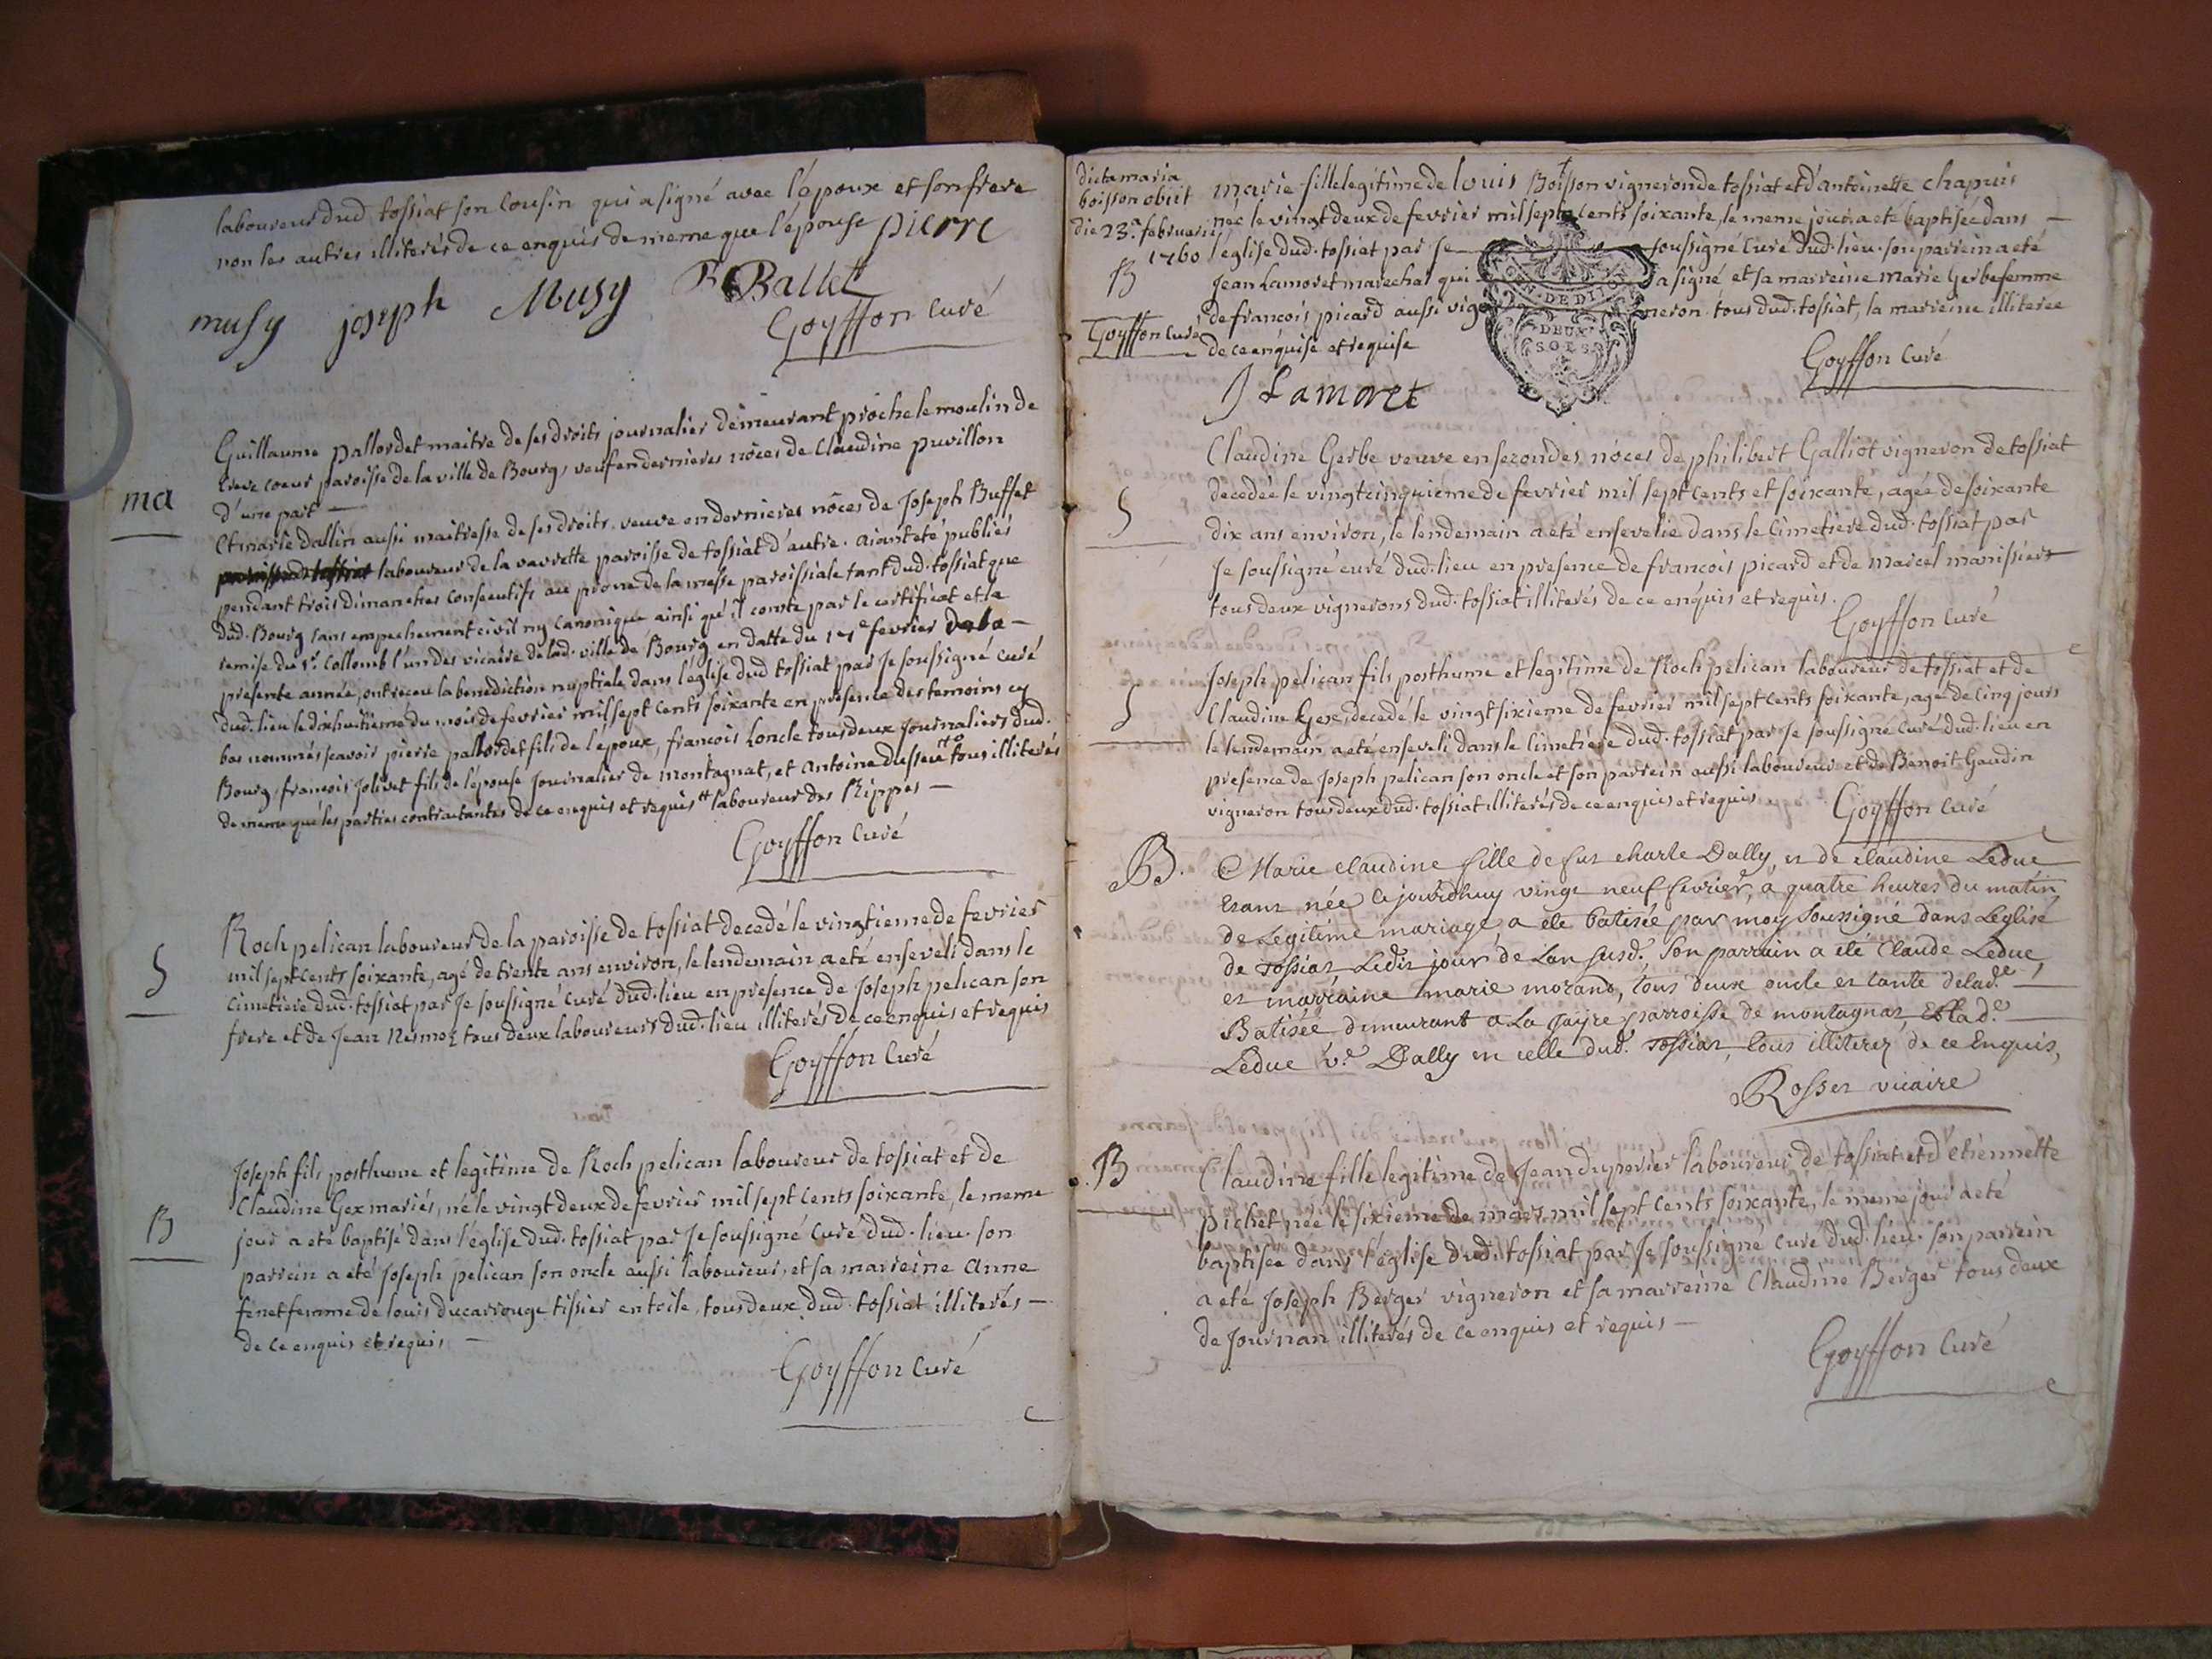 laboureur dud tossiat son cousin qui a signé avec l'époux et son frere
non les autres illiterés de ce enquis de meme que l'épouse pierre
musy joseph Musy Ballet
Goyffon curé
ma
Guillaume pallordet maitre de ses droits journalier demeurant proche le moulin de
coeur paroisse de la ville de Bourg, veuf en dernieres nôces de Claudine puvillon
d'une part —
Et marie dallin aussi maitresse de ses droits veuve en dernieres nôces de Joseph Buffet
laboureur de la vavrette paroisse de tossiat d'autre. aiant eté publiés
pendant trois dimanches consecutifs au prone de la messe paroissiale tant dud. tossiat que
dud. Bourg sans empechement civil ny canonique ainsi qu'il conste par le certificat et la
remise du sr. Collomb l'un des vicaire de lad. ville de Bourg en datte du fevrier de la —
presente année, ont receu la benediction nuptiale dans l'église dud tossiat par Je soussigné curé
dud. lieu le dixhuitieme du mois de fevrier mil sept cents soixante en presence des temoins cy
bas nommés scavoir pierre pallordet fils de l'époux, francois Loncle tous deux journaliers dud.
Bourg, francois Jolivet fils de l'épouse Journalier de montagnat, et antoine dusseu tous illiterés
de meme que les parties contractantes de ce enquis et requis laboureur des Rippes —
Goyffon curé
S
Roch pelican laboureur de la paroisse de tossiat decedé le vingtieme de fevrier
mil sept cents soixante, agé de trente ans environ, le lendemain a eté enseveli dans le
cimetiere dud. tossiat par Je soussigné curé dud. lieu en presence de Joseph pelican son
frere et de Jean Nesmoz tous deux laboureurs dud. lieu illiterés de ce enquis et requis
Goyffon curé
B
Joseph fils posthume et legitime de Roch pelican laboureur de tossiat et de
Claudine Gex mariés, né le vingt deux de fevrier mil sept cents soixante, le meme
jour a eté baptisé dans l'église dud. tossiat par Je soussigné curé dud. lieu. son
parrein a eté Joseph pelican son oncle aussi laboureur, et sa marreine anne
fenet femme de louis ducarrouge tissier en toile, tous deux dud. tossiat illiterés —
de ce enquis et requis —
Goyffon curé
dicta maria
boisson obiit
die 23a. februarii
1760
B
Goyffon curé
marie fille legitime de louis Boisson vigneron de tossiat et d'antoinette chapuis
née le vingt deux de fevrier mil sept cents soixante, le meme jour a eté baptisée dans —
l'église dud. tossiat par Je soussigné curé dud. lieu. son parrein a eté
Jean Lamoret marechal qui a signé et sa marreine marie Gerbe femme
de francois picard aussi vigneron tous dud. tossiat, la marreine illiteree
de ce enquise et requise
Goyffon curé
J Lamoret
DE DIJON
DEUX
SOLS
S
Claudine Gerbe veuve en secondes nôces de philibert Galliot vigneron de tossiat
decedée le vingtcinquieme de fevrier mil sept cents et soixante, agée de soixante
dix ans environ, le lendemain a eté ensevelie dans le cimetiere dud. tossiat par
Je soussigné curé dud. lieu en presence de francois picard et de marcel manissier
tous deux vignerons dud. tossiat illiterés de ce enquis et requis.
Goyffon curé
S
Joseph pelican fils posthume et legitime de Roch pelican laboureur de tossiat et de
Claudine Gex, decedé le vingt sixieme de fevrier mil sept cents soixante, agé de cinq jours
le lendemain a eté enseveli dans le cimetiere dud. tossiat par Je soussigné curé dud. lieu en
presence de Joseph pelican son oncle et son parrein aussi laboureur et de Benoit Gaudin
vigneron tous deux dud. tossiat illiterés de ce enquis et requis
Goyffon curé
B.
Marie claudine fille de fut charle Dally, et de claudine Leduc
Etant née ce jourdhuy vingt neuf fevrier, à quatre heures du matin
de Legitime mariage, a eté batisée par moy soussigné dans Leglise
de tossiat Ledit jour de Lan susd. Son parrain a eté Claude Leduc
et marraine marie morand, tous deux oncle et tante delade.
Batisée demeurant a La parroisse de montagnat, Et lade.
Leduc ve. Dally en celle dud. tossiat, tous illiterez de ce Enquis,
Rosset vicaire
B
Claudine fille legitime de Jean duperier laboureur de tossiat et d'etiennette
pichet née le sixieme de mars mil sept cents soixante, le meme jour a eté
baptisée dans l'église dud. tossiat par Je soussigné curé dud. lieu. son parrein
a eté Joseph Berger vigneron et sa marreine Claudine Berger tous deux
de Journan illiterés de ce enquis et requis —
Goyffon curé